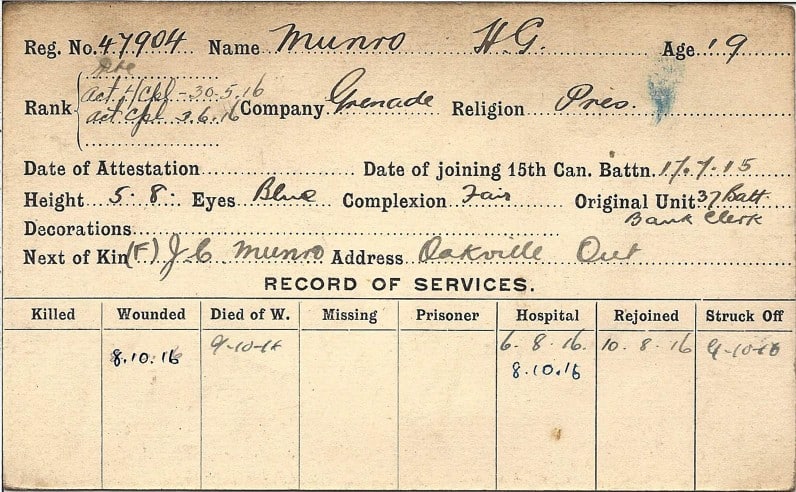 Reg. No. 47904 Name Munro H.G. Age 19
Pte
Rank Act L/Cpl - 30.5.16 Company Grenade Religion Pres.
act Cpl 3.6.16
Date of Attestation Date of joining 15th Can. Battn. 17.7.15
Height 5.8. Eyes Blue Complexion Fair Original Unit 37 Batt
Bank Clerk
Decorations
Next of Kin (F) J C Munro Address Oakville Ont
RECORD OF SERVICES.
Killed Wounded Died of W. Missing Prisoner Hospital Rejoined Struck Off
8.10.16 9-10-16 6.8.16. 10.8.16 9-10-16
8.10.16